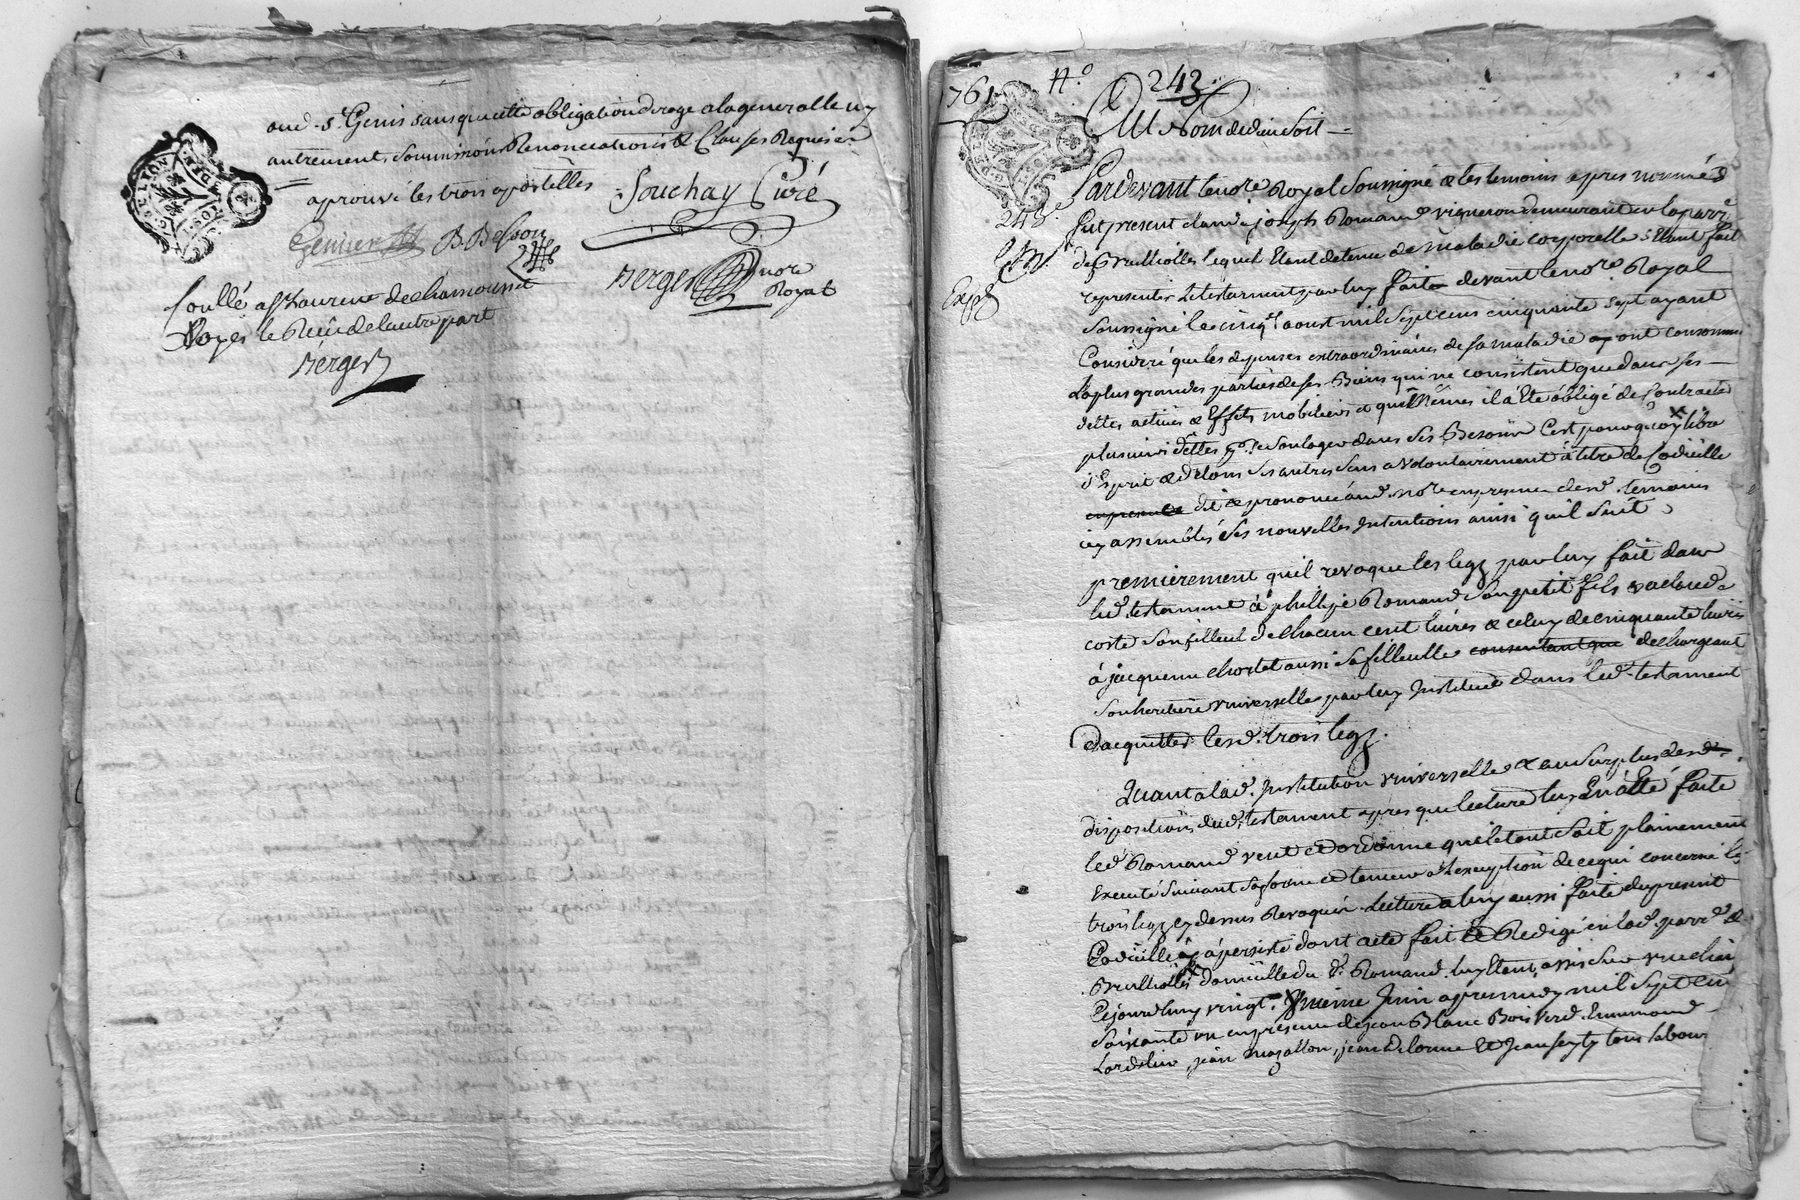 aud. st Genis sans que cette obligation deroge a la generalle ny
autrement, soumissions Renonciations & Clauses Requises
aprouvé les trois apostilles
Souchay Curé
B. Besson
Berger nore
Royal
Scellé a st Laurent de chamousset
Voyes le Reçu de l'autre part
Berger
761
No 243
Au Nom de dieu Soit
243e
Expé
Pardevant le nore Royal Soussigné & les temoins apres nommés
fut present claude joseph Romand vigneron demeurant en la parre
de Brulliolles lequel Etant detenu de maladie corporelle s'Etant fait
representer le testament par luy fait devant le nore Royal
soussigné le cinqe aoust mil Sept cens cinquante sept ayant
Consideré que les depenses extraordinaires de sa maladie ayont consommé
la plus grandes parties de ses Biens qui ne consistent que dans ses
dettes actives & Effets mobiliers & qu'il a Eté obligé de Contracter
plusieurs dettes pr se soulager dans ses Besoins C'est pourquoy libre
d'Esprit & de tous ses autres sens a volontairement à titre de Codicille
en presence dit & prononcé aud. nore en presence desd. temoins
icy assemblés ses nouvelles Intentions ainsi qu'il suit
premierement qu'il revoque les legz par luy fait dans
led. testament à phillipe Romand Son petit fils & a claude
coste son filleul de chacun cent livres & celuy de cinquante livres
à jacquemie chortet aussi sa filleulle consentant que dechargeant
son heritiere universelle par luy Instituée dans led. testament
d'acquitter lesd. trois legz.
Quant a lad. Institution universelle & au surplus desd.
dispositions dud. testament apres que lecture luy En a Eté faite
led. Romand veut et ordonne que le tout soit plainement
Executé suivant sa forme et teneur a l'exception de ce qui concerne les
trois legz cy dessus Revoqués. Lecture a luy aussi faite du present
Codicille y a persisté dont acte fait & Redigé en lad. parre de
Brulliolles domicille du d. Romand luy Etant assis sur une chaise
Cejourd'huy vingt Juin apres midy mil Sept cent
soixante un en presence de jean Blanc Boisverd Ennemond
Lardelier, jean mazallon, jean Delorme Et jean seyty tous labour